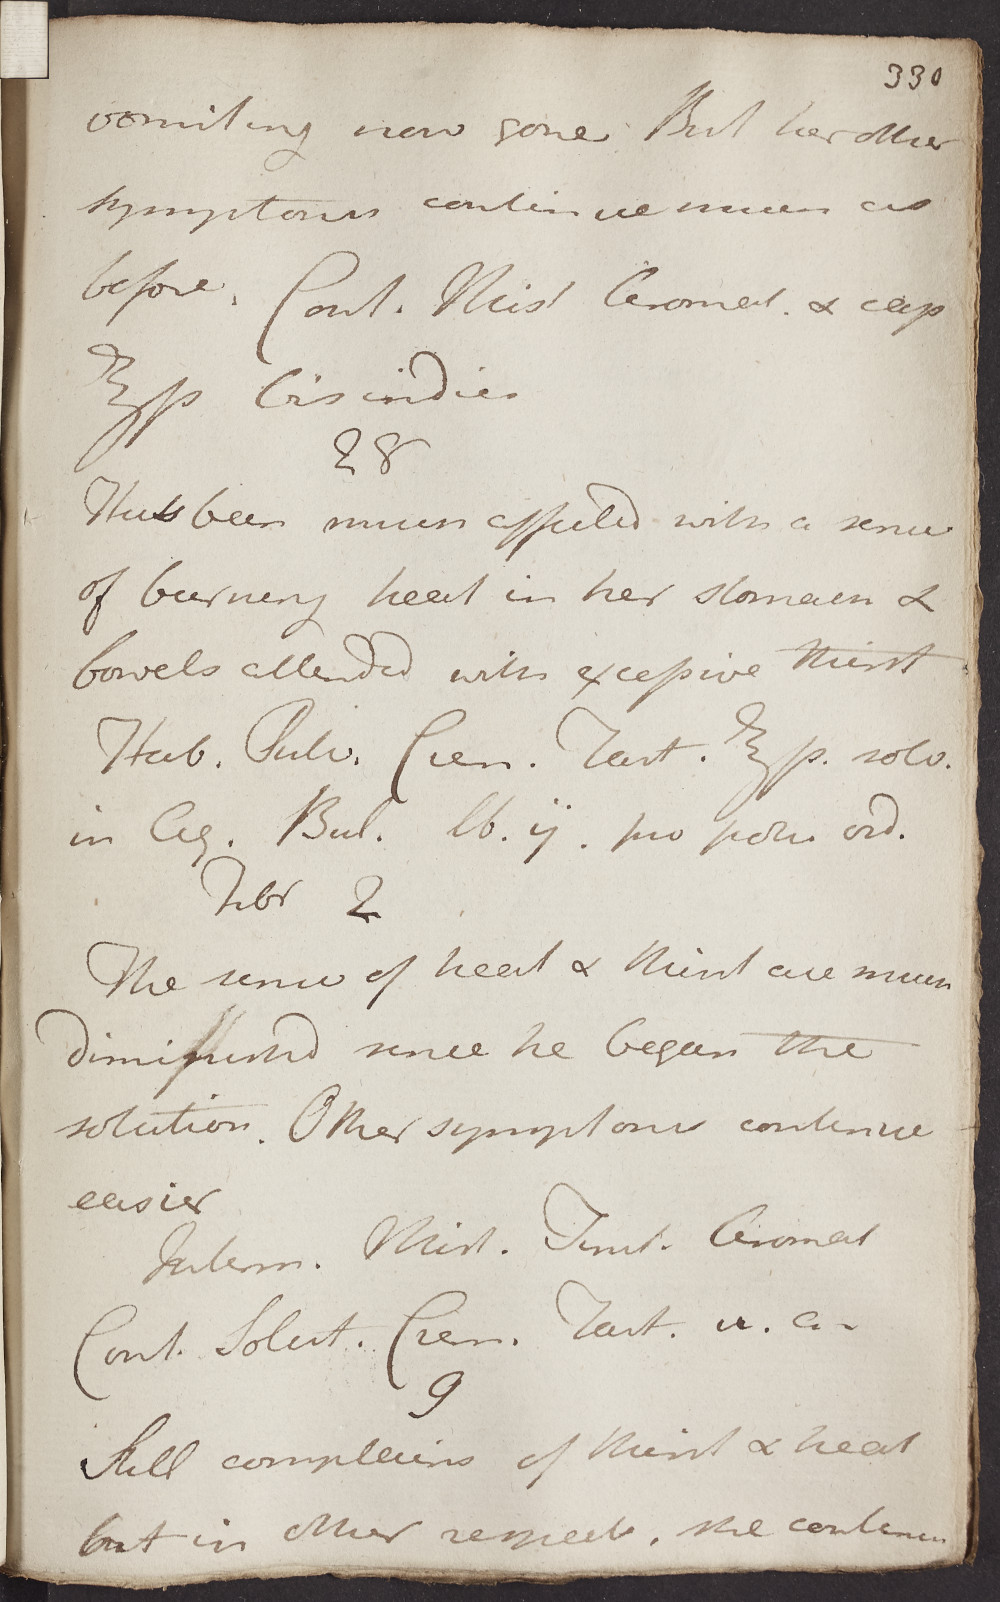 330
vomiting now gone But her other
symptoms continue much as
before. Cont. Mist Aromat. & cap
℥ſs bis indies
28
Has been much affected with a sense
of burning heat in her stomach &
bowels attended with excessive thirst
Hab. Pulv. Crem. Tart. ℥ſs. solv.
in Aq. Bul. lb. ij. pro potu ord.
Febr 2
The sense of heat & thirst are much
diminished since he began the
solution. Other symptoms continue
easier
Interm. Mist. Tinct. Aromat
Cont. Solut. Crem. Tart. u. a.
9
Still complains of thirst & heat
but in other respects, she continues